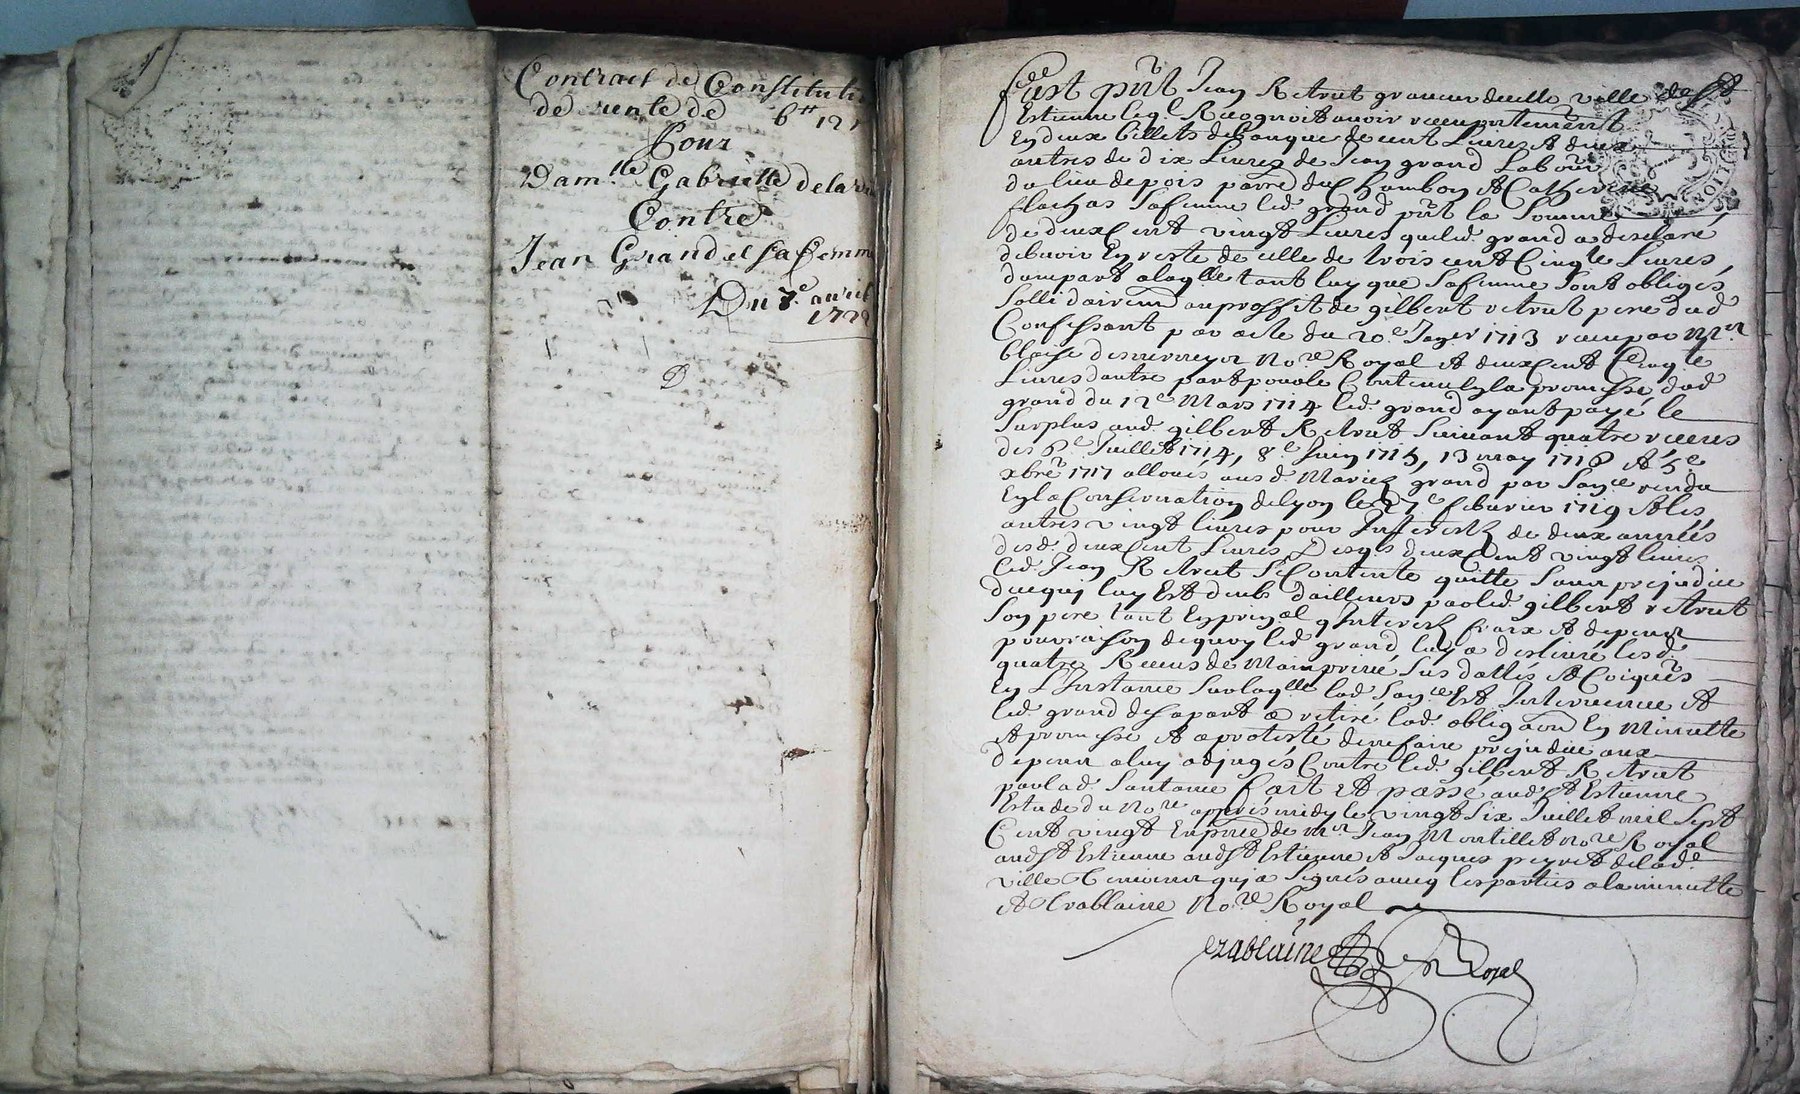 Contract de Constituti
de rente de 6ᵗᵗ 12
Pour
Dam.lle Gabrielle delara
Contre
Jean Grand et sa femme
Du 7.e avril
172
D
fust pñt Jean Retrut graveur de cette ville de St
Estienne leql. Recognoit avoir receu presentement
En deux billets de banque de cent Livres & deux
autres de dix Livres de Jean grand Labour
du lieu de pois parre du Chambon & Catherine
flachas sa femme led. grand pñt la Somme
de deux Cent vingt Livres que led. grand a declaré
debvoir En reste de celle de trois cent Cinqte Livres,
d'une part a laqlle tant luy que sa femme sont obligés
sollidairemt au proffit de gilbert retrut pere dud
Confessant par acte du 20.e Janer 1713 receu par Mr.
blaise desverneyes No.re Royal & deux Cent Cinq.te
Livres d'autre part pour le Contenu En la promesse dud
grand du 12.e Mars 1714 led. grand ayant payé le
surplus aud. gilbert Retrut suivant quatre recus
des 6.e Juillet 1714, 8.e Juin 1715, 13 may 1716 & 5.e
xbre 1717 alloués aus d. Mariez grand par san.ce rendu
En la Conservation de Lyon le 27.e febvrier 1719 & les
autres vingt livres pour Interestz de deux années
desd. deux Cent Livres, Desqs deux Cent vingt livres
led. Jean Retrut se Contente quitte sans prejudice
de ce qui luy Est deub d'ailleurs par led. gilbert retrut
son pere tant En prinal qInterestz fraix & depens
pour raison de quoy led. grand luy a deslivré lesd.
quatre Recus de Main privée sus dattés & Coigués
En L'Instance sur laqlle lad. san.ce Est Intervenue &
led. grand de sa part a retiré lad. obligaon En Minutte
& promesse & a protesté de ne faire prejudice aux
depens a luy adjugés Contre led. gilbert Retrut
par lad. Santance fait et passé aud. St Estienne
Estude du No.re apprés midy le vingt six Juillet mil Sept
Cent vingt En pñce de Mr. Jean Montillet No.re Royal
aud St Estienne aud St Estienne & Jacques peyret de lad.
ville temoins qui a signés avec les parties a la minutte
& Crablaine No.re Royal
Crablaine No.re Royal